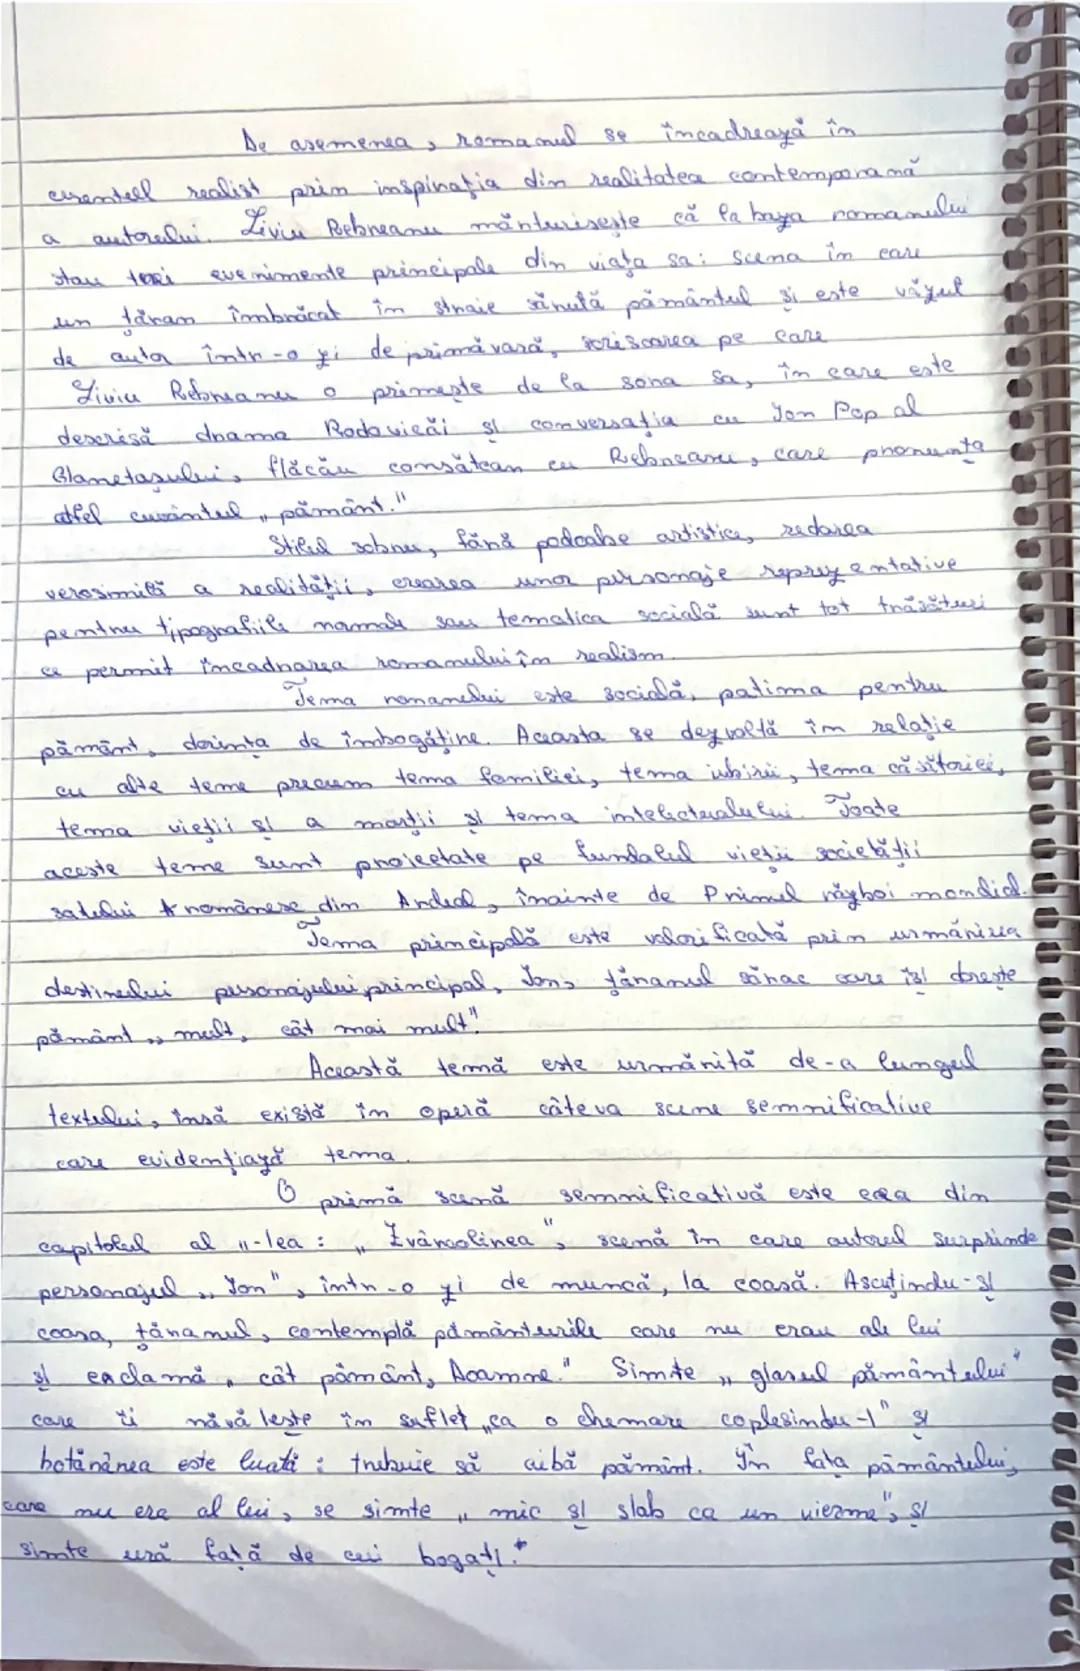 De asemenea, romanul se încadrează în
curentul realist prin inspirația din realitatea contemporană
a autorului. Liviu Rebreanu mărturisește că la baza romanului
stau trei evenimente principale din viața sa: scena în care
un țăran îmbrăcat în straie sărută pământul și este văzut
de autor într-o zi de primăvară, scrisoarea pe care
Liviu Rebreanu o primește de la sora sa, în care este
descrisă drama Rodovicăi și conversația cu Ion Pop al
Glanetașului, flăcău consătean cu Rebreanu, care pronunța
altfel cuvântul „pământ."
Stilul sobru, fără podoabe artistice, redarea
verosimilă a realității, crearea unor personaje reprezentative
pentru tipografiile normale sau tematica socială sunt tot trăsături
ce permit încadrarea romanului în realism.
Tema romanului este socială, patima pentru
pământ, dorința de îmbogățire. Aceasta se dezvoltă în relație
cu alte teme precum tema familiei, tema iubirii, tema căsătoriei,
tema vieții și a morții și tema intelectualului. Toate
aceste teme sunt proiectate pe fundalul vieții societății
satului românesc din Ardeal, înainte de Primul război mondial.
Tema principală este valorificată prin urmărirea
destinului personajului principal, Ion, țăranul sărac care își dorește
pământ „mult, cât mai mult"
Această temă este urmărită de-a lungul
textului, însă există în operă câteva scene semnificative
care evidențiază tema.
O primă scenă semnificativă este cea din
capitolul al II-lea: „Zvârcolirea", scenă în care autorul surprinde
personajul „Ion", într-o zi de muncă, la coasă. Ascuțindu-și
coasa, țăranul, contemplă pământurile care nu erau ale lui
și exclamă „cât pământ, Doamne." Simte „glasul pământului"
care îi năvălește în suflet „ca o chemare copleșindu-l" și
hotărârea este luată: trebuie să aibă pământ. În fața pământului,
care nu era al lui, se simte „mic și slab ca un vierme", și
simte ură față de cei bogați.